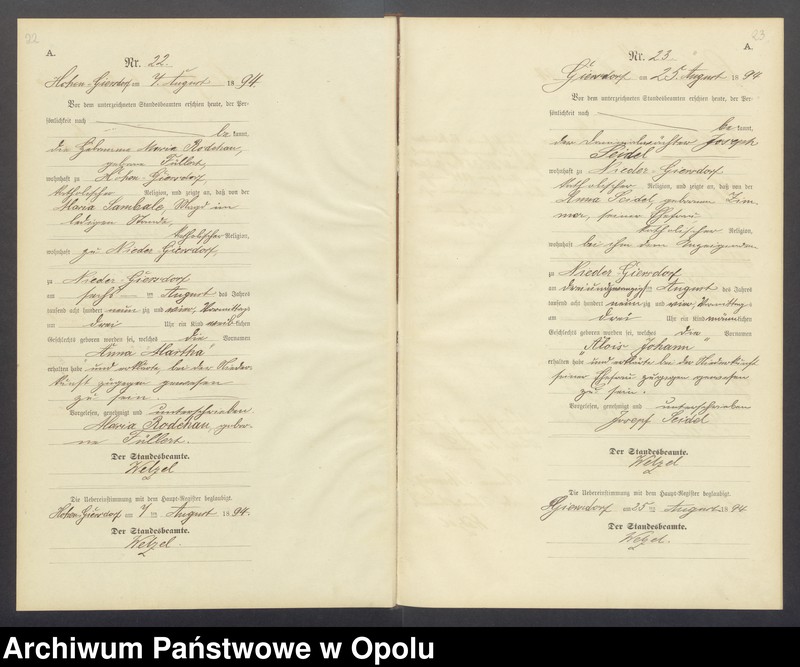 22
A.
Nr. 22.
Hohen-Giersdorf am 7. August 1894.
Vor dem unterzeichneten Standesbeamten erschien heute, der Per-
sönlichkeit nach
be kannt,
die Hebamme Maria Rodehau,
geborne Füllert,
wohnhaft zu Hohen-Giersdorf,
katholischer Religion, und zeigte an, daß von der
Maria Lambale, Magd im
ledigen Stande,
katholischer Religion,
wohnhaft zu Nieder Giersdorf,
zu Nieder-Giersdorf
am August des Jahres
tausend acht hundert neunzig und vier, Vormittags
um drei Uhr ein Kind weiblichen
Geschlechts geboren worden sei, welches die Vornamen
"Anna Martha"
erhalten habe und erklärte, bei der Nieder-
kunft zugegen gewesen
zu sein.
Vorgelesen, genehmigt und unterschrieben.
Maria Rodehau, gebor-
ne Füllert.
Der Standesbeamte.
Wetzel
Die Uebereinstimmung mit dem Haupt-Register beglaubigt.
Hohen-Giersdorf am 7 ten August 1894.
Der Standesbeamte.
Wetzel.
23
A.
Nr. 23.
Giersdorf am 25. August 1894
Vor dem unterzeichneten Standesbeamten erschien heute, der Per-
sönlichkeit nach
be kannt,
der Joseph
Seidel
wohnhaft zu Nieder-Giersdorf
katholischer Religion, und zeigte an, daß von der
Anna Seidel, geborenen Zim-
mer, seiner Ehefrau
katholischer Religion,
wohnhaft bei ihm dem Anzeigenden
zu Nieder-Giersdorf
am dreiundzwanzigsten August des Jahres
tausend acht hundert neunzig und vier, Vormittags
um drei Uhr ein Kind männlichen
Geschlechts geboren worden sei, welches die Vornamen
"Alois Johann"
erhalten habe und erklärte bei der Niederkunft
seiner Ehefrau zugegen gewesen
zu sein.
Vorgelesen, genehmigt und unterschrieben
Josepf Seidel
Der Standesbeamte.
Wetzel
Die Uebereinstimmung mit dem Haupt-Register beglaubigt.
Giersdorf am 25 ten August 1894
Der Standesbeamte.
Wetzel.
Archiwum Państwowe w Opolu